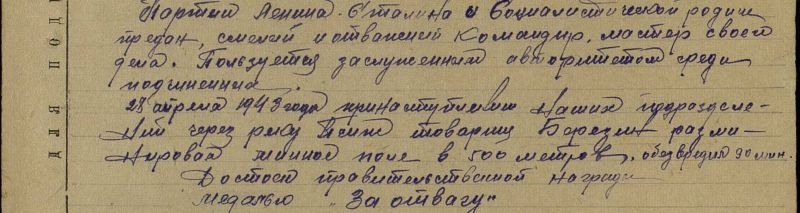 Партии Ленина-Сталина и Социалистической родине
предан, смелый и отважный командир, мастер своего
дела. Пользуется заслуженным авторитетом среди
подчиненных.
28 апреля 1943 года при наступлении наших подразделе-
ний через реку товарищ Березин разми-
нировал минное поле в 500 метров, обезвредил 90 мин.
Достоин правительственной награды
медалью "За отвагу"